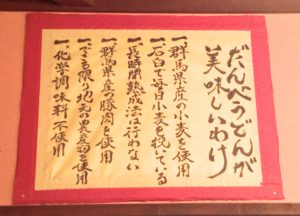 だんべうどんが
美味しいわけ
一、群馬県産の小麦を使用
一、石臼で毎日小麦を挽いている
一、長時間熟成法は行わない
一、群馬県産の豚肉を使用
一、できる限り地元の農産物を使用
一、化学調味料不使用